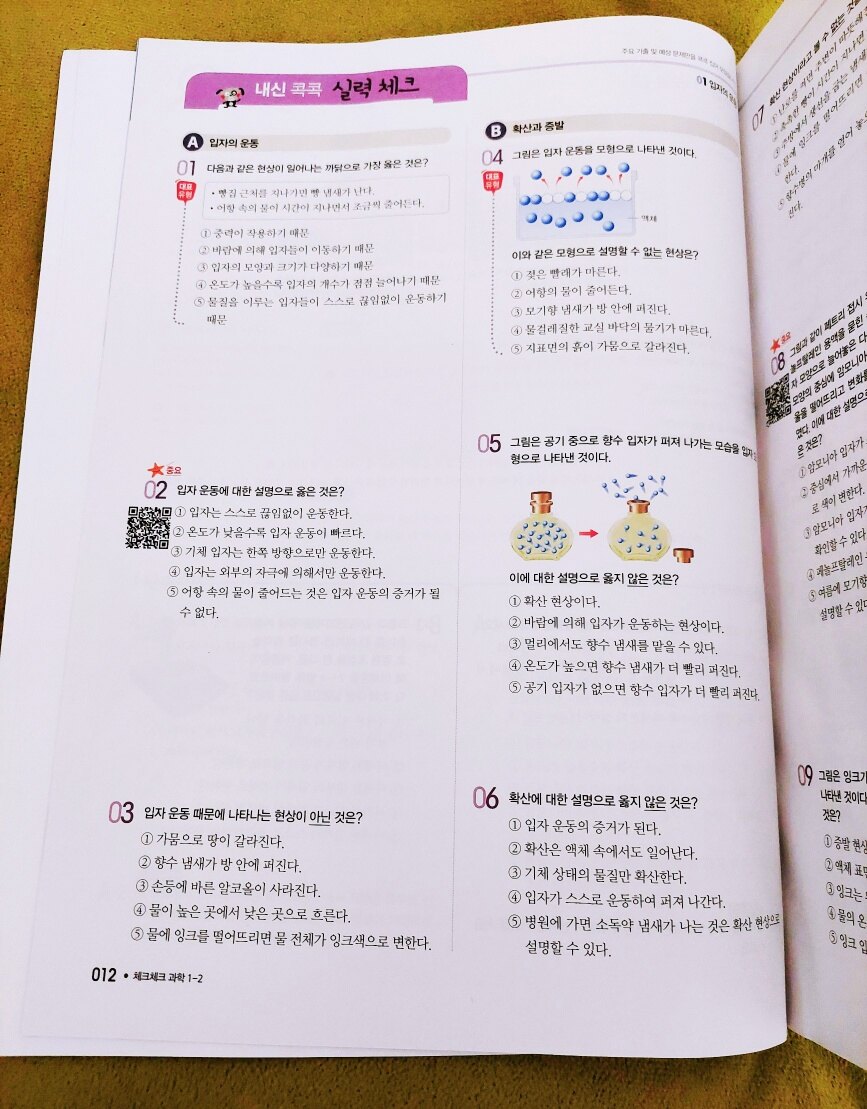 주요 기출 및 예상 문제만을
내신 콕콕 실력 체크
01 입자의 운동
A 입자의 운동
01 다음과 같은 현상이 일어나는 까닭으로 가장 옳은 것은?
대표 유형
• 빵집 근처를 지나가면 빵 냄새가 난다.
• 어항 속의 물이 시간이 지나면서 조금씩 줄어든다.
① 중력이 작용하기 때문
② 바람에 의해 입자들이 이동하기 때문
③ 입자의 모양과 크기가 다양하기 때문
④ 온도가 높을수록 입자의 개수가 점점 늘어나기 때문
⑤ 물질을 이루는 입자들이 스스로 끊임없이 운동하기
때문
중요
02 입자 운동에 대한 설명으로 옳은 것은?
① 입자는 스스로 끊임없이 운동한다.
② 온도가 낮을수록 입자 운동이 빠르다.
③ 기체 입자는 한쪽 방향으로만 운동한다.
④ 입자는 외부의 자극에 의해서만 운동한다.
⑤ 어항 속의 물이 줄어드는 것은 입자 운동의 증거가 될
수 없다.
03 입자 운동 때문에 나타나는 현상이 아닌 것은?
① 가뭄으로 땅이 갈라진다.
② 향수 냄새가 방 안에 퍼진다.
③ 손등에 바른 알코올이 사라진다.
④ 물이 높은 곳에서 낮은 곳으로 흐른다.
⑤ 물에 잉크를 떨어뜨리면 물 전체가 잉크색으로 변한다.
012 • 체크체크 과학 1-2
B 확산과 증발
04 그림은 입자 운동을 모형으로 나타낸 것이다.
대표 유형
액체
이와 같은 모형으로 설명할 수 없는 현상은?
① 젖은 빨래가 마른다.
② 어항의 물이 줄어든다.
③ 모기향 냄새가 방 안에 퍼진다.
④ 물걸레질한 교실 바닥의 물기가 마른다.
⑤ 지표면의 흙이 가뭄으로 갈라진다.
05 그림은 공기 중으로 향수 입자가 퍼져 나가는 모습을 입자
형으로 나타낸 것이다.
이에 대한 설명으로 옳지 않은 것은?
① 확산 현상이다.
② 바람에 의해 입자가 운동하는 현상이다.
③ 멀리에서도 향수 냄새를 맡을 수 있다.
④ 온도가 높으면 향수 냄새가 더 빨리 퍼진다.
⑤ 공기 입자가 없으면 향수 입자가 더 빨리 퍼진다.
06 확산에 대한 설명으로 옳지 않은 것은?
① 입자 운동의 증거가 된다.
② 확산은 액체 속에서도 일어난다.
③ 기체 상태의 물질만 확산한다.
④ 입자가 스스로 운동하여 퍼져 나간다.
⑤ 병원에 가면 소독약 냄새가 나는 것은 확산 현상으로
설명할 수 있다.
07 확산 현상이라고 볼 수 없는 것은
중요
08 그림과 같이 페트리 접시
놀프탈레인 용액을 묻힌
자 모양으로 늘어놓은 다
모양의 중심에 암모니아
울을 떨어뜨리고 변화를
였다. 이에 대한 설명으로
은 것은?
① 암모니아 입자가
② 중심에서 가까운
로 색이 변한다.
③ 암모니아 입자가
확인할 수 있다
④ 페놀프탈레인
⑤ 여름에 모기향
설명할 수 있다
09 그림은 잉크가
나타낸 것이다
것은?
① 증발 현상
② 액체 표면
③ 잉크는
④ 물의 온
⑤ 잉크 입